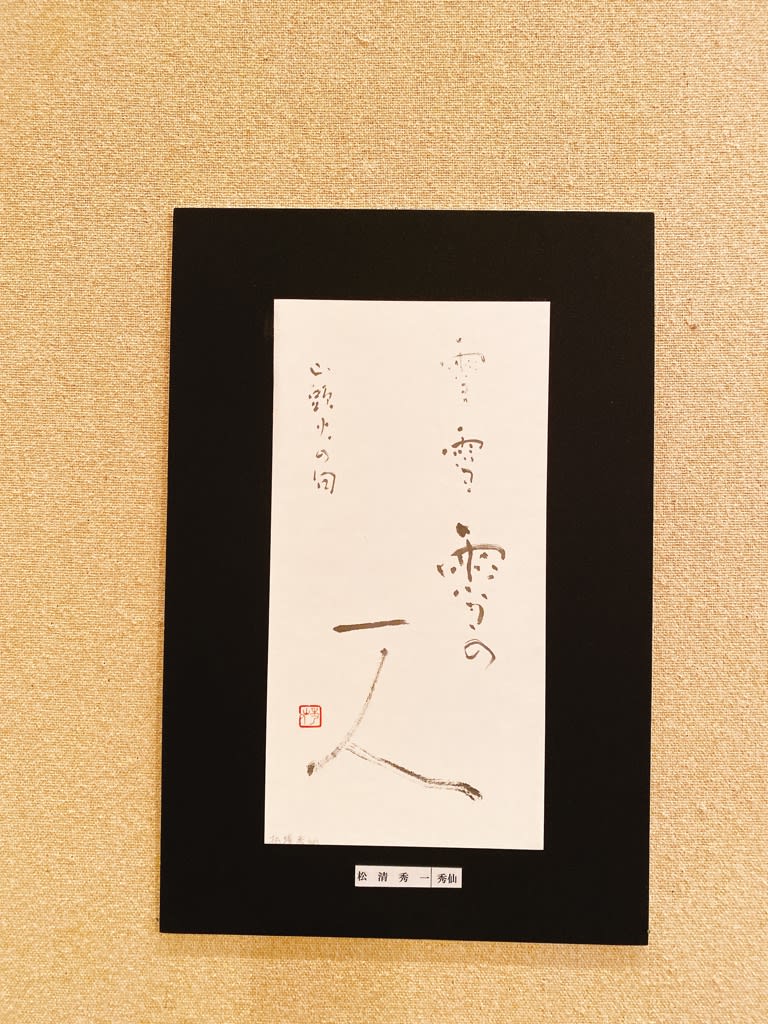 雪雪雪の
一人
山頭火の句
松清秀一 秀仙